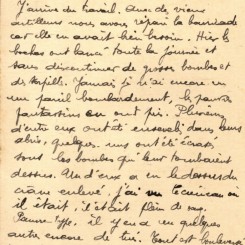 J'arrive du travail. Avec de vieux
artilleurs nous avons réparé la barricade
car elle en avait bien besoin. Hier les
boches ont lancé toute la journée et
sans discontinuer de grosses bombes et
des torpilles. Jamais je n'ai encore vu
un pareil bombardement, les pauvres
fantassins ont pris. Plusieurs
d'entre eux ont été ensevelis dans leurs
abris, quelques uns ont été écrasés
sous les bombes qui leur tombaient
dessus. Un d'eux a eu le dessus du
crâne enlevé, j'ai vu où
il était, c'était plein de sang.
Pauvre type. il y en a eu quelques
autre encore de tués. Tout est bouleversé